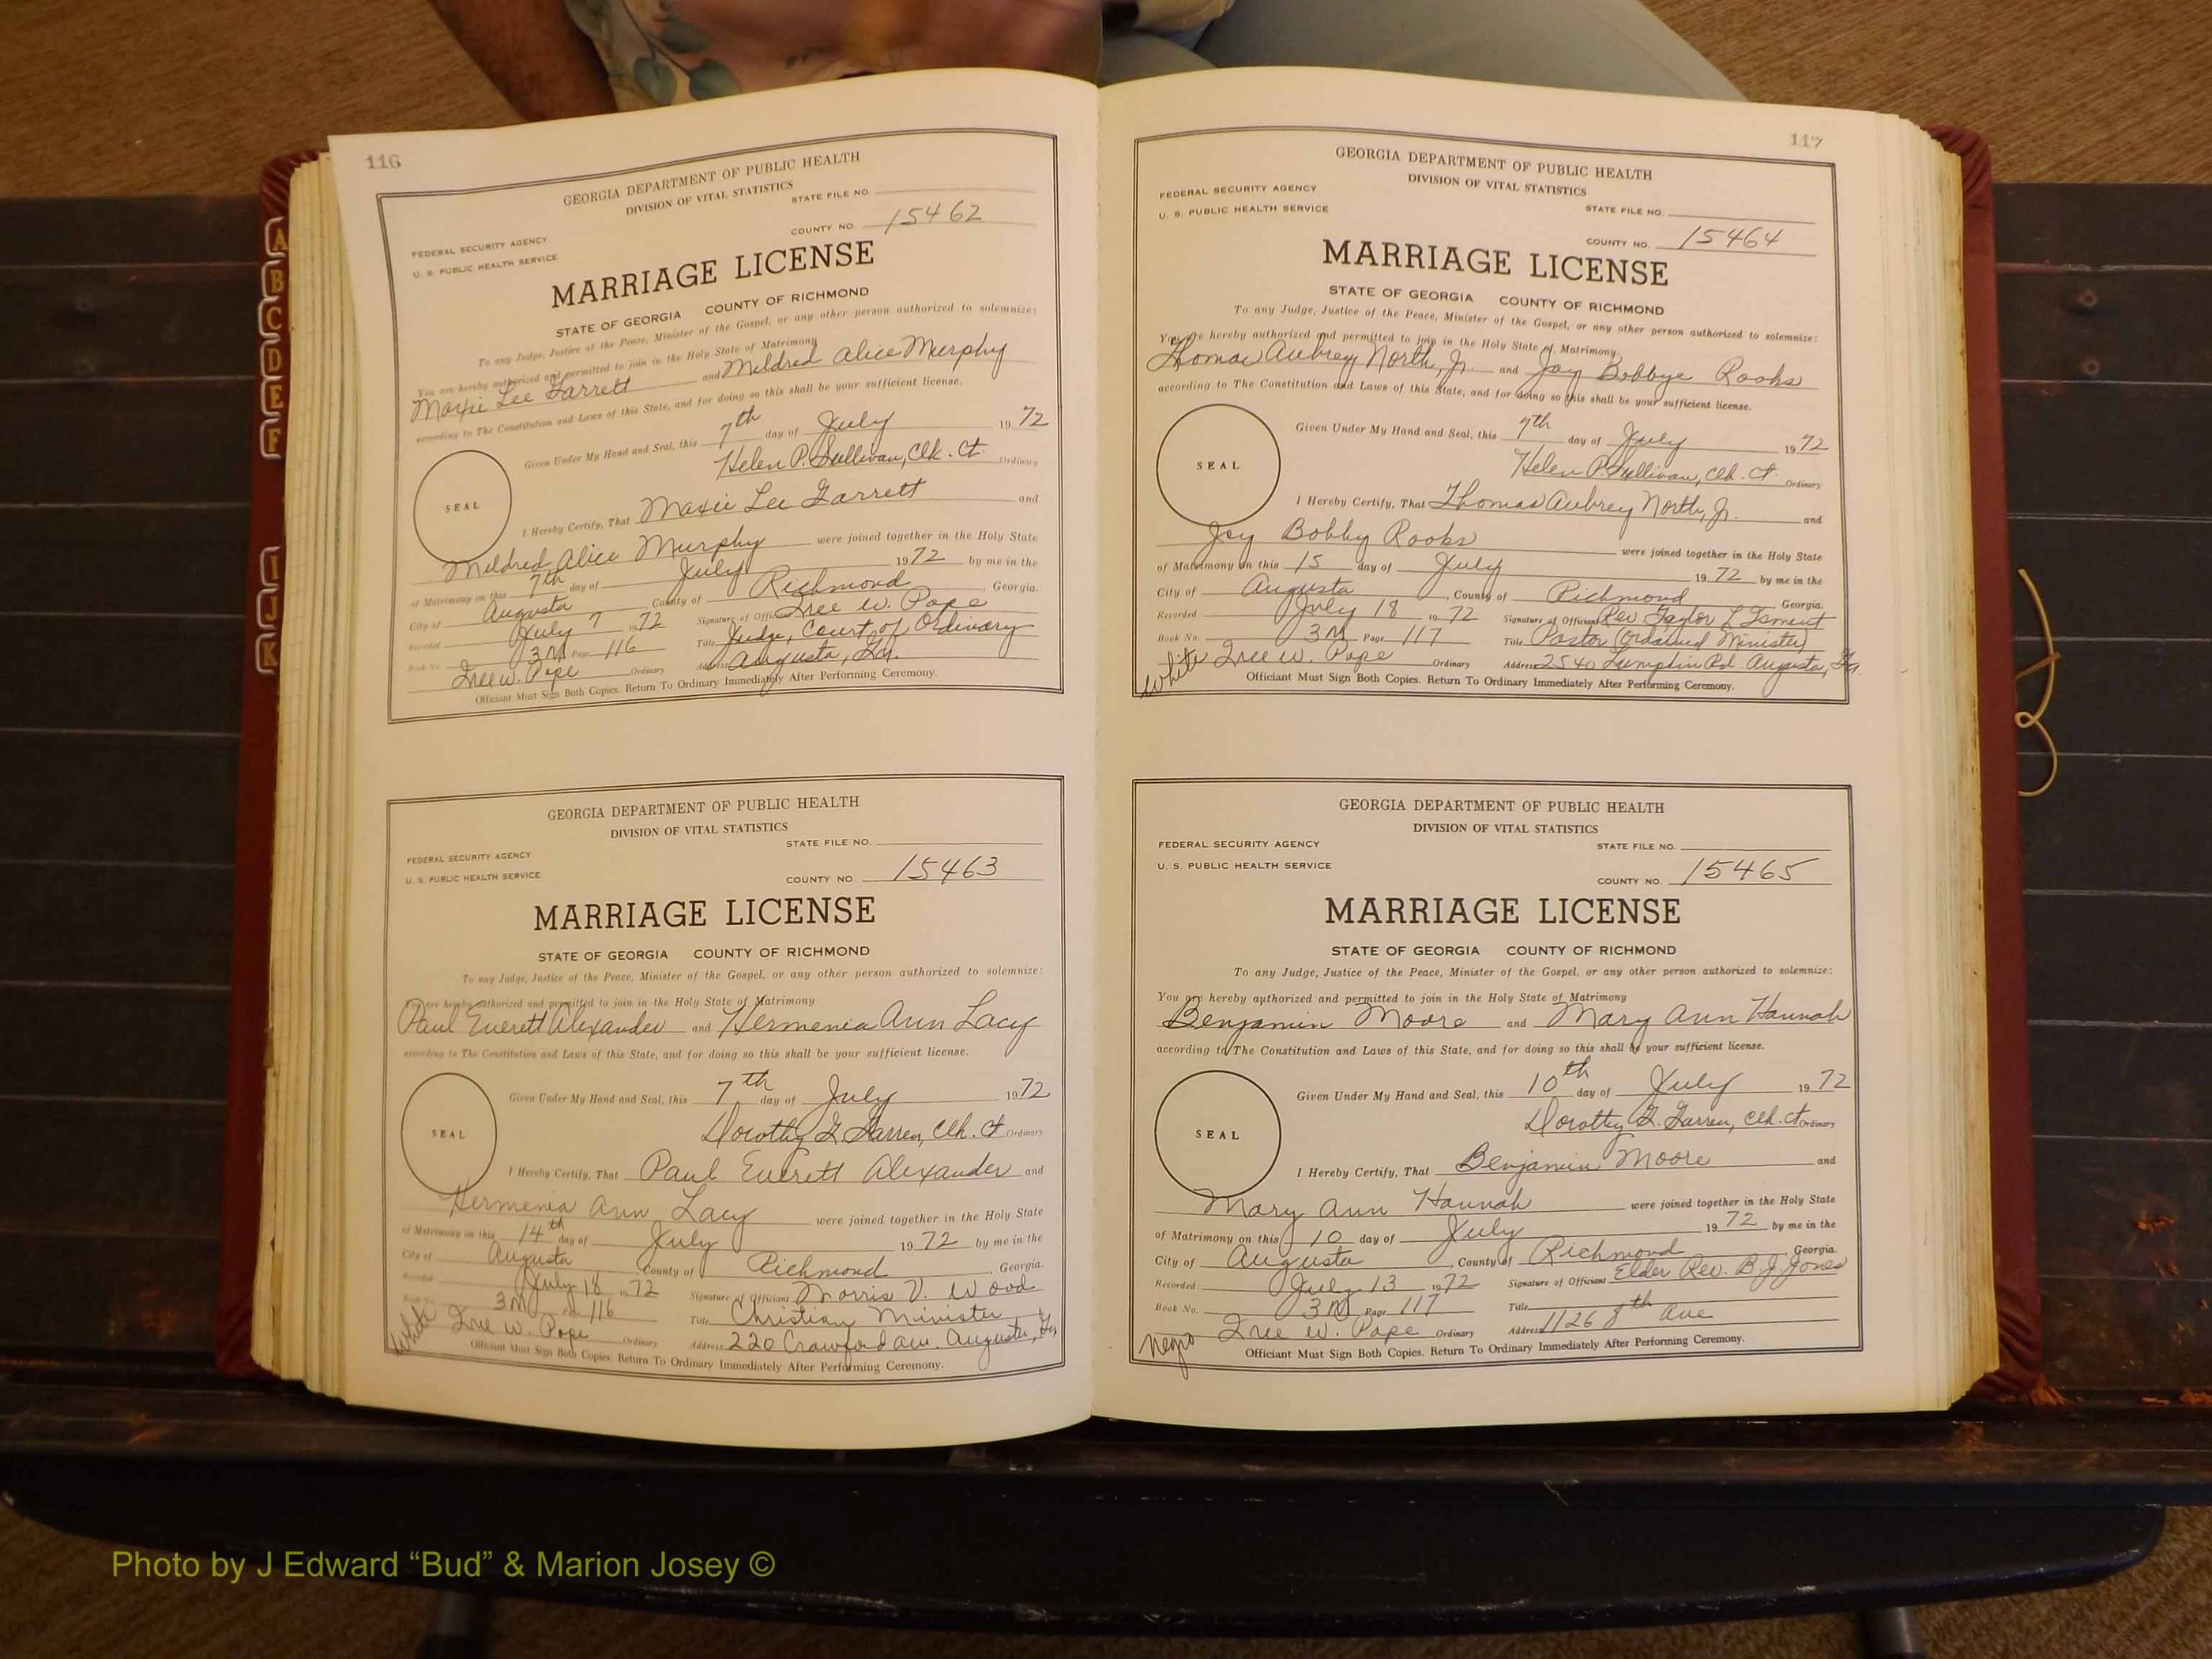 A
B
C
D
E
F
I
J
K
116
GEORGIA DEPARTMENT OF PUBLIC HEALTH
DIVISION OF VITAL STATISTICS
STATE FILE NO.
COUNTY NO. 15462
FEDERAL SECURITY AGENCY
U. S. PUBLIC HEALTH SERVICE
MARRIAGE LICENSE
STATE OF GEORGIA COUNTY OF RICHMOND
To any Judge, Justice of the Peace, Minister of the Gospel, or any other person authorized to solemnize:
You are hereby authorized and permitted to join in the Holy State of Matrimony
Maxie Lee Garrett and Mildred Alice Murphy
according to The Constitution and Laws of this State, and for doing so this shall be your sufficient license.
Given Under My Hand and Seal, this 7th day of July 1972
Helen P. Sullivan, Clk. Ct. Ordinary
SEAL
I Hereby Certify, That Maxie Lee Garrett and
Mildred Alice Murphy were joined together in the Holy State
of Matrimony on this 7th day of July 1972 by me in the
City of Augusta, County of Richmond, Georgia.
Recorded July 7 1972 Signature of Officiant Iree W. Pope
Book No. 3M Page 116 Title Judge, Court of Ordinary
Iree W. Pope Ordinary Address Augusta, Ga.
Officiant Must Sign Both Copies. Return To Ordinary Immediately After Performing Ceremony.
GEORGIA DEPARTMENT OF PUBLIC HEALTH
DIVISION OF VITAL STATISTICS
STATE FILE NO.
FEDERAL SECURITY AGENCY
U. S. PUBLIC HEALTH SERVICE
COUNTY NO. 15463
MARRIAGE LICENSE
STATE OF GEORGIA COUNTY OF RICHMOND
To any Judge, Justice of the Peace, Minister of the Gospel, or any other person authorized to solemnize:
You are hereby authorized and permitted to join in the Holy State of Matrimony
Paul Everett Alexander and Hermenia Ann Lacy
according to The Constitution and Laws of this State, and for doing so this shall be your sufficient license.
Given Under My Hand and Seal, this 7th day of July 1972
Dorothy G. Garren, Clk. Ct. Ordinary
SEAL
I Hereby Certify, That Paul Everett Alexander and
Hermenia Ann Lacy were joined together in the Holy State
of Matrimony on this 14th day of July 1972 by me in the
City of Augusta, County of Richmond, Georgia.
Recorded July 18 1972 Signature of Officiant Morris V. Wood
Book No. 3M Page 116 Title Christian Minister
white Iree W. Pope Ordinary Address 220 Crawford Ave. Augusta, Ga
Officiant Must Sign Both Copies. Return To Ordinary Immediately After Performing Ceremony.
117
GEORGIA DEPARTMENT OF PUBLIC HEALTH
DIVISION OF VITAL STATISTICS
FEDERAL SECURITY AGENCY
U. S. PUBLIC HEALTH SERVICE
STATE FILE NO.
COUNTY NO. 15464
MARRIAGE LICENSE
STATE OF GEORGIA COUNTY OF RICHMOND
To any Judge, Justice of the Peace, Minister of the Gospel, or any other person authorized to solemnize:
You are hereby authorized and permitted to join in the Holy State of Matrimony
Thomas Aubrey North, Jr. and Joy Bobbye Rooks
according to The Constitution and Laws of this State, and for doing so this shall be your sufficient license.
Given Under My Hand and Seal, this 7th day of July 1972
Helen P. Sullivan, Clk. Ct. Ordinary
SEAL
I Hereby Certify, That Thomas Aubrey North, Jr. and
Joy Bobby Rooks were joined together in the Holy State
of Matrimony on this 15 day of July 1972 by me in the
City of Augusta, County of Richmond, Georgia.
Recorded July 18 1972 Signature of Officiant Rev Taylor L
Book No. 3M Page 117 Title Pastor (Ordained Minister)
white Iree W. Pope Ordinary Address 2540 Lumpkin Rd. Augusta, Ga.
Officiant Must Sign Both Copies. Return To Ordinary Immediately After Performing Ceremony.
GEORGIA DEPARTMENT OF PUBLIC HEALTH
DIVISION OF VITAL STATISTICS
FEDERAL SECURITY AGENCY
STATE FILE NO.
U. S. PUBLIC HEALTH SERVICE
COUNTY NO. 15465
MARRIAGE LICENSE
STATE OF GEORGIA COUNTY OF RICHMOND
To any Judge, Justice of the Peace, Minister of the Gospel, or any other person authorized to solemnize:
You are hereby authorized and permitted to join in the Holy State of Matrimony
Benjamin Moore and Mary Ann Hannah
according to The Constitution and Laws of this State, and for doing so this shall be your sufficient license.
Given Under My Hand and Seal, this 10th day of July 1972
Dorothy G. Garren, Clk. Ct. Ordinary
SEAL
I Hereby Certify, That Benjamin Moore and
Mary Ann Hannah were joined together in the Holy State
of Matrimony on this 10 day of July 1972 by me in the
City of Augusta, County of Richmond, Georgia.
Recorded July 13 1972 Signature of Officiant Elder Rev. B. J. Jones
Book No. 3M Page 117 Title
negro Iree W. Pope Ordinary Address 1126 8th Ave
Officiant Must Sign Both Copies. Return To Ordinary Immediately After Performing Ceremony.
Photo by J Edward “Bud” & Marion Josey ©